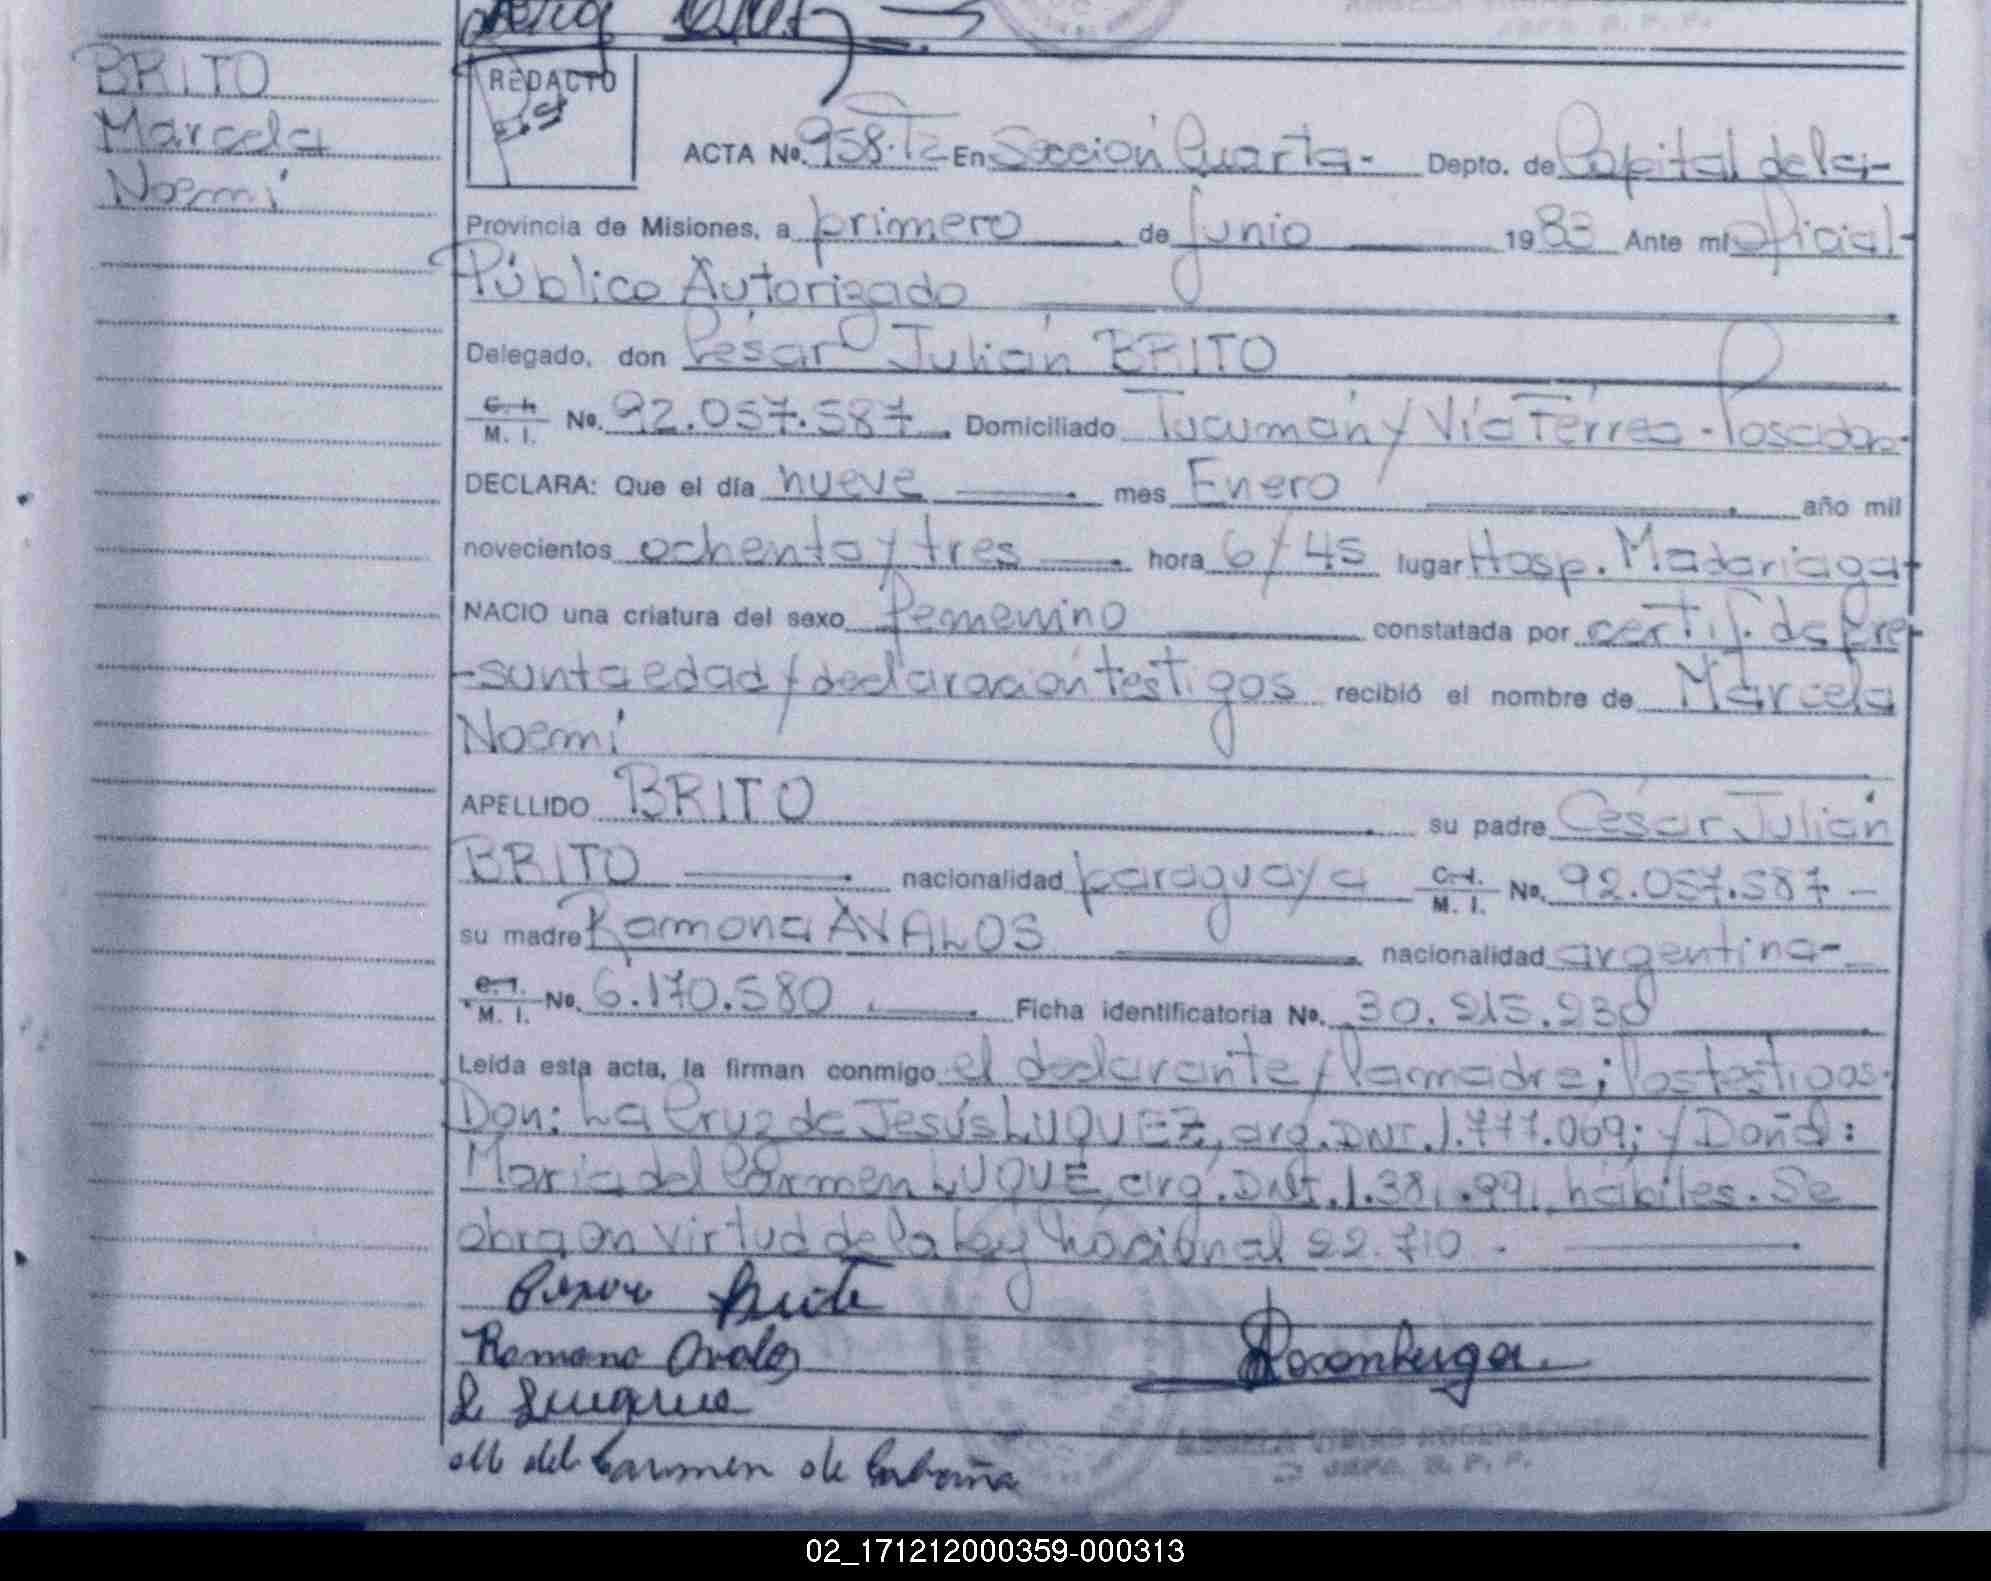 BRITO
Marcela
Noemí
REDACTO
ACTA No. 958.T2 En Sección Cuarta - Depto. de Capital de la -
Provincia de Misiones, a primero de junio 1983 Ante mí oficial -
Público Autorizado
Delegado, don César Julián BRITO
C. I. M. I. No. 92.057.587 Domiciliado Tucumán y Vía Férrea - Posadas -
DECLARA: Que el día nueve mes Enero año mil
novecientos ochenta y tres hora 6/45 lugar Hosp. Madariaga -
NACIO una criatura del sexo femenino constatada por certif. de pre-
-sunta edad y declaración testigos recibió el nombre de Marcela
Noemí
APELLIDO BRITO su padre César Julián
BRITO nacionalidad paraguaya C. I. M. I. No. 92.057.587 -
su madre Ramona AVALOS nacionalidad argentina -
C. I. M. I. No. 6.170.580 Ficha identificatoria No. 30.215.230
Leída esta acta, la firman conmigo el declarante y la madre; los testigos
Don: La Cruz de Jesús LUQUEZ, arg. DNI. 1.777.069; y Doña:
María del Carmen LUQUE, arg. DNI. hábiles. Se
obra en virtud de la Ley Nacional 22.710 .
Brito
Ramona Avalos
Rosemberger
del Carmen de
ROSENBERGER
JEFA R. P. P.
02_171212000359-000313